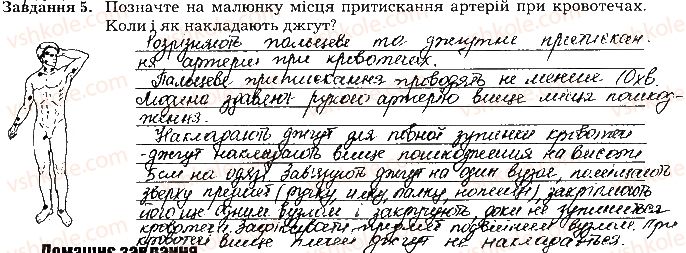 Завдання 5. Позначте на малюнку місця притискання артерій при кровотечах.
Коли і як накладають джгут?
Розрізняють пальцеве та джгутне притискан-
ня артерії при кровотечах.
Пальцеве притискання проводять не менше 10хв.
Людина здавлює рукою артерію вище місця пошкод-
ження.
Накладають джгут для повної зупинки кровотечі
джгут накладають вище пошкодження на висоті
5см на одязі. Зав'язують джгут на один вузол, поміщають
зверху предмет (ручку, палку, ) закріплюють
його ще одним вузлом і закручують, доки не зупиниться
кровотеча. Зафіксувати предмет подвійним вузлом. При
кровотечі вище плечей джгут не накладається.
Домашнє завдання